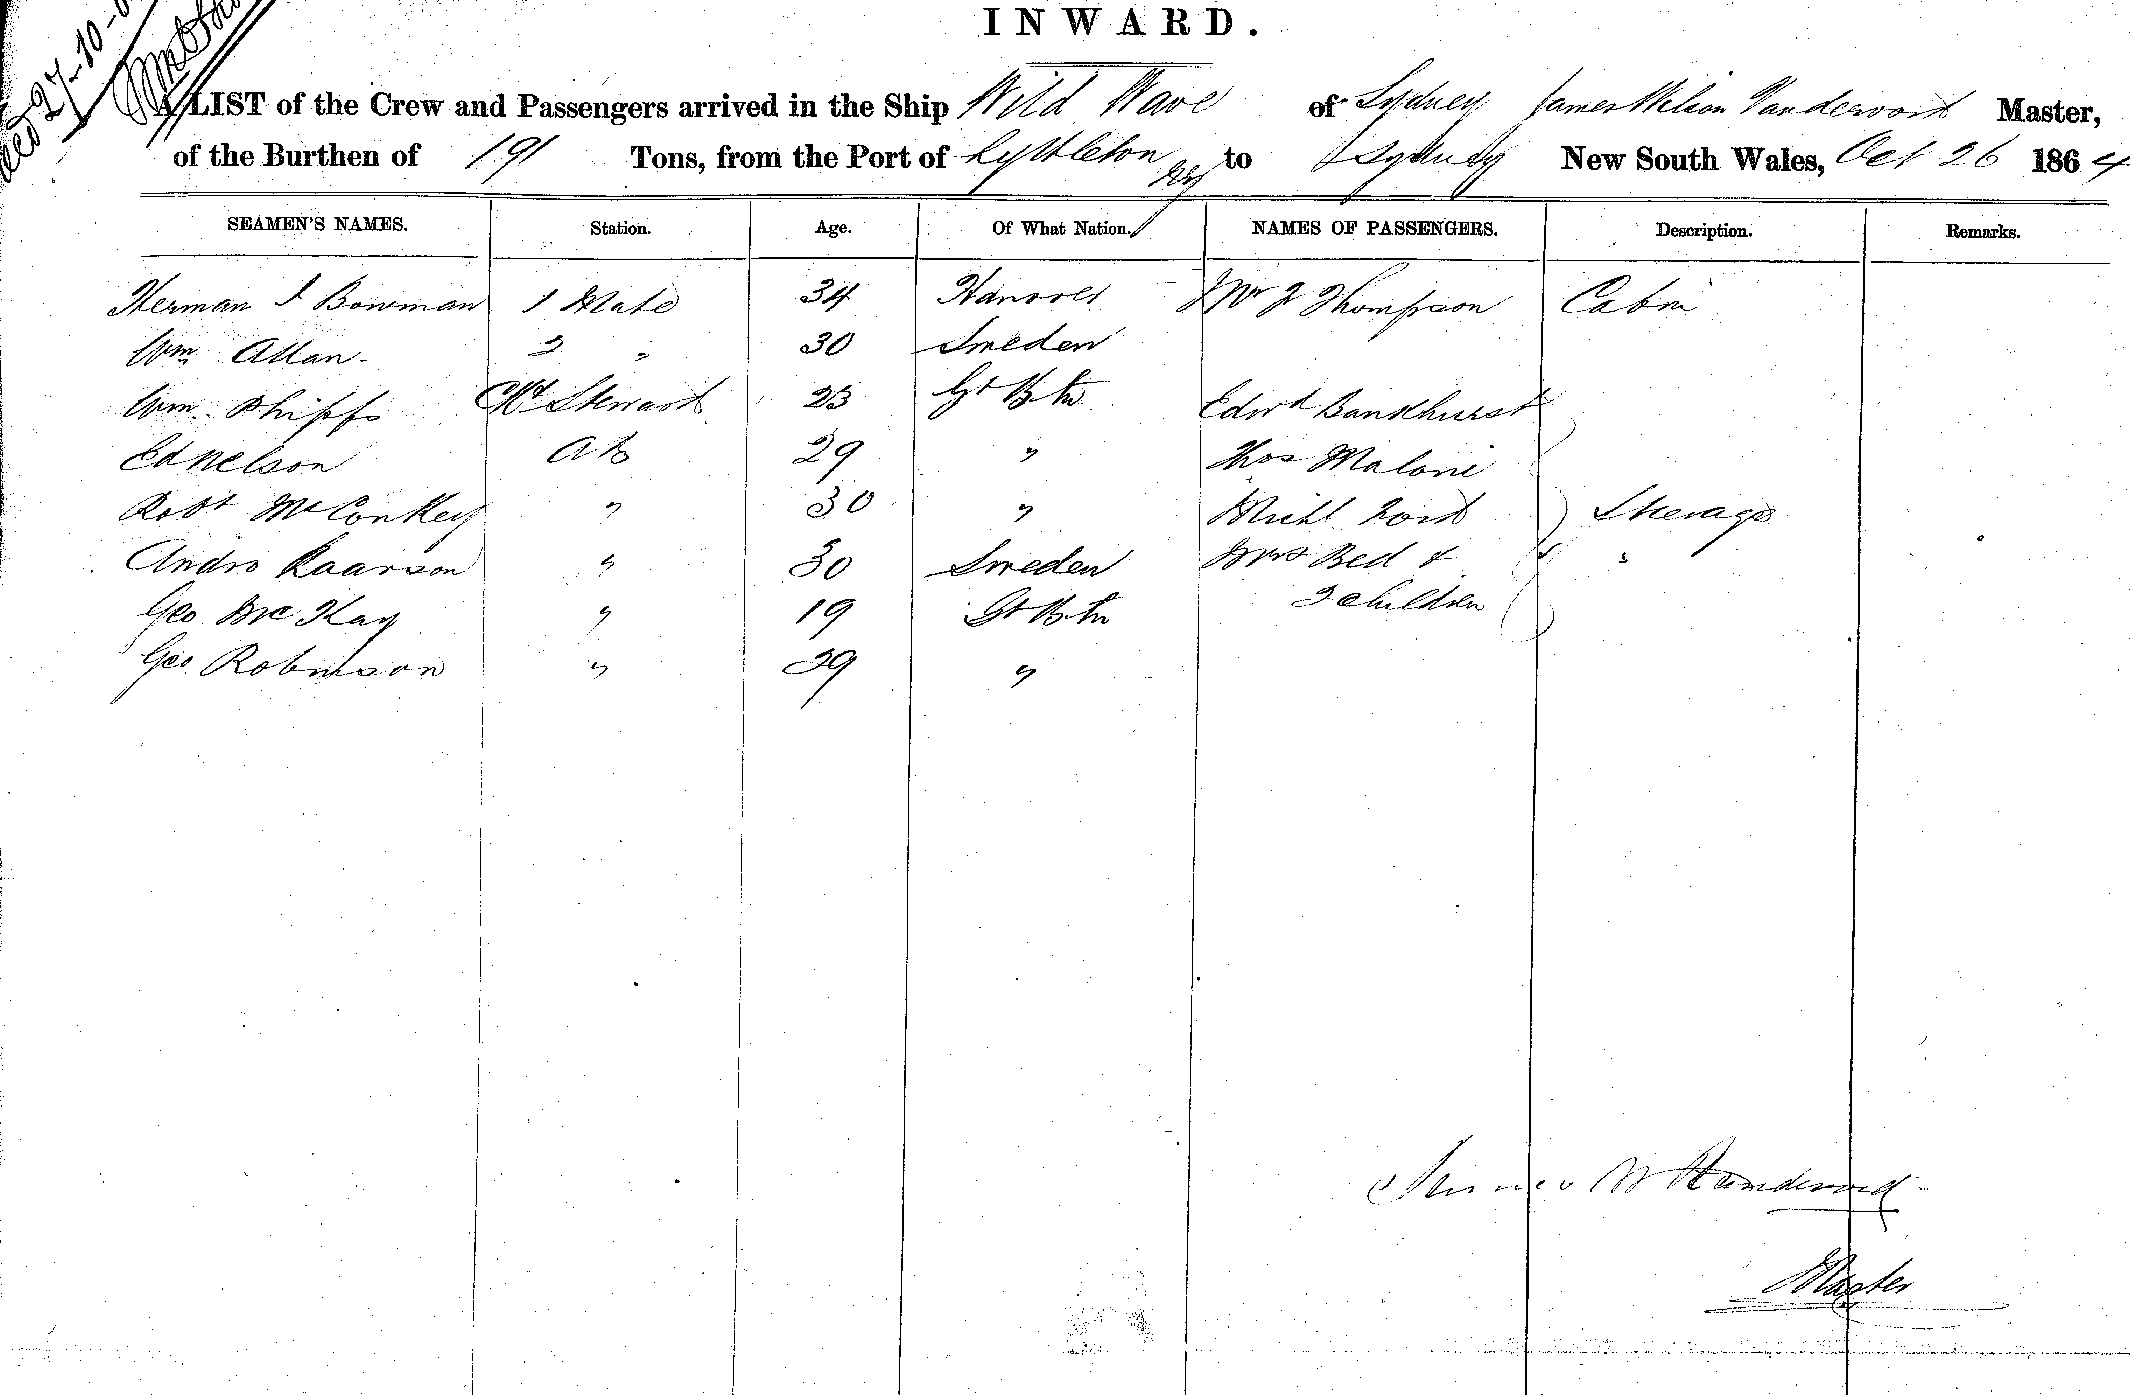 27-10-6
INWARD.
A LIST of the Crew and Passengers arrived in the Ship Wild Wave of Sydney James Nelson Vandervord Master,
of the Burthen of 191 Tons, from the Port of Lyttleton NZ to Sydney New South Wales, Oct 26 1864
SEAMEN'S NAMES. Station. Age. Of What Nation. NAMES OF PASSENGERS. Description. Remarks.
Herman J Bowman 1 Mate 34 Hanover Mr J Thompson Cabin
Wm Allan 2 " 30 Sweden
Wm Phipps Ck & Steward 23 Gt Btn Edwd Bankhurst
Ed Nelson AB 29 " Thos Malone
Robt McConkey " 30 " Michl Ford Steerage
Andro Kaarson " 30 Sweden Mrs Bed & "
Geo McKay " 19 Gt Btn 2 children
Geo Robinson " 29 "
James W Vandervord
Master